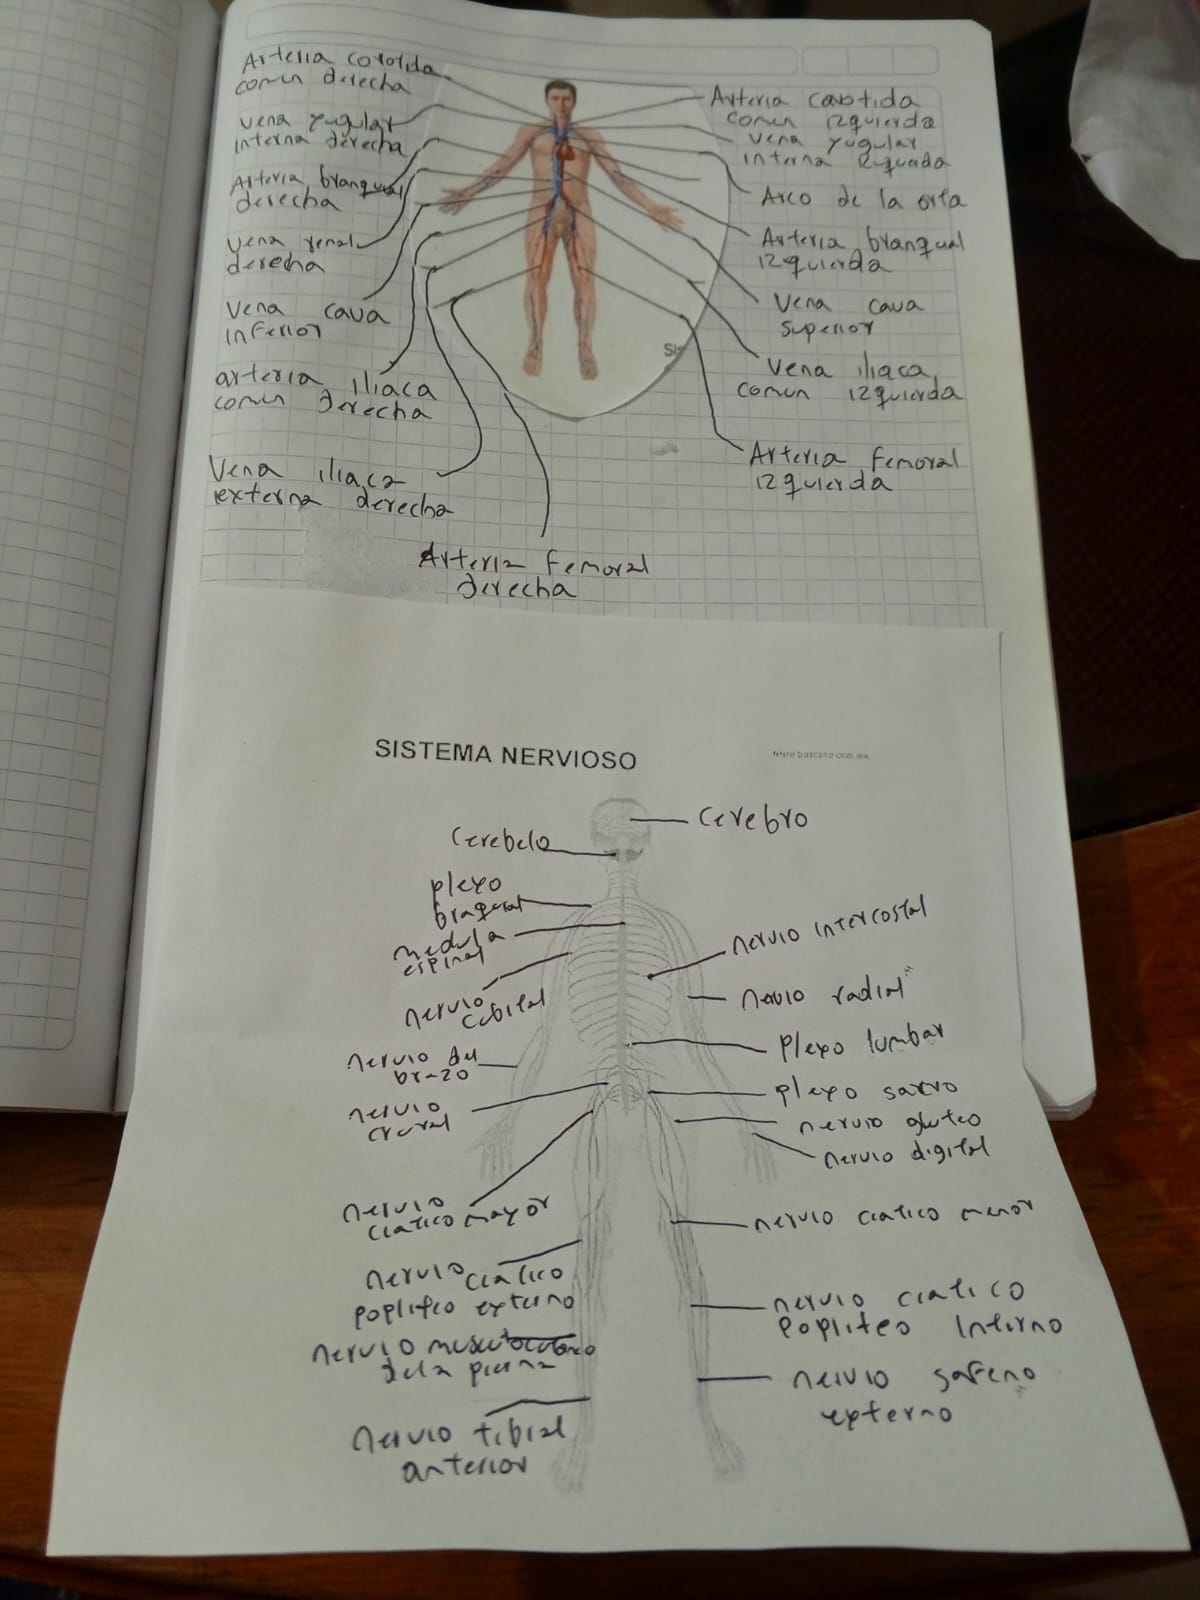 Arteria corotida
comun derecha
vena yugular
interna derecha
Arteria branquial
derecha
vena renal
derecha
Vena cava
inferior
arteria iliaca
comun derecha
Vena iliaca
externa derecha
Arteria femoral
derecha
Arteria carotida
comun izquierda
vena yugular
interna
Arco de la orta
Arteria branquial
izquierda
Vena cava
superior
Vena iliaca
comun izquierda
Arteria femoral
izquierda
Si
SISTEMA NERVIOSO
cerebro
cerebelo
plexo
braquial
medula
espinal
nervio
cubital
nervio del
brazo
nervio
crural
nervio
ciatico mayor
nervio ciatico
popliteo externo
nervio musculocutaneo
de la pierna
nervio tibial
anterior
nervio intercostal
nervio radial
plexo lumbar
plexo sacro
nervio gluteo
nervio digital
nervio ciatico menor
nervio ciatico
popliteo interno
nervio safeno
externo